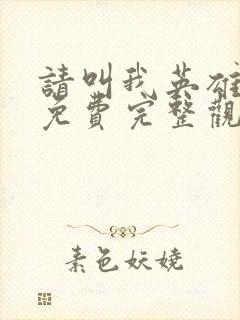 請叫我英雄
免費完整觀
素色妖嬈